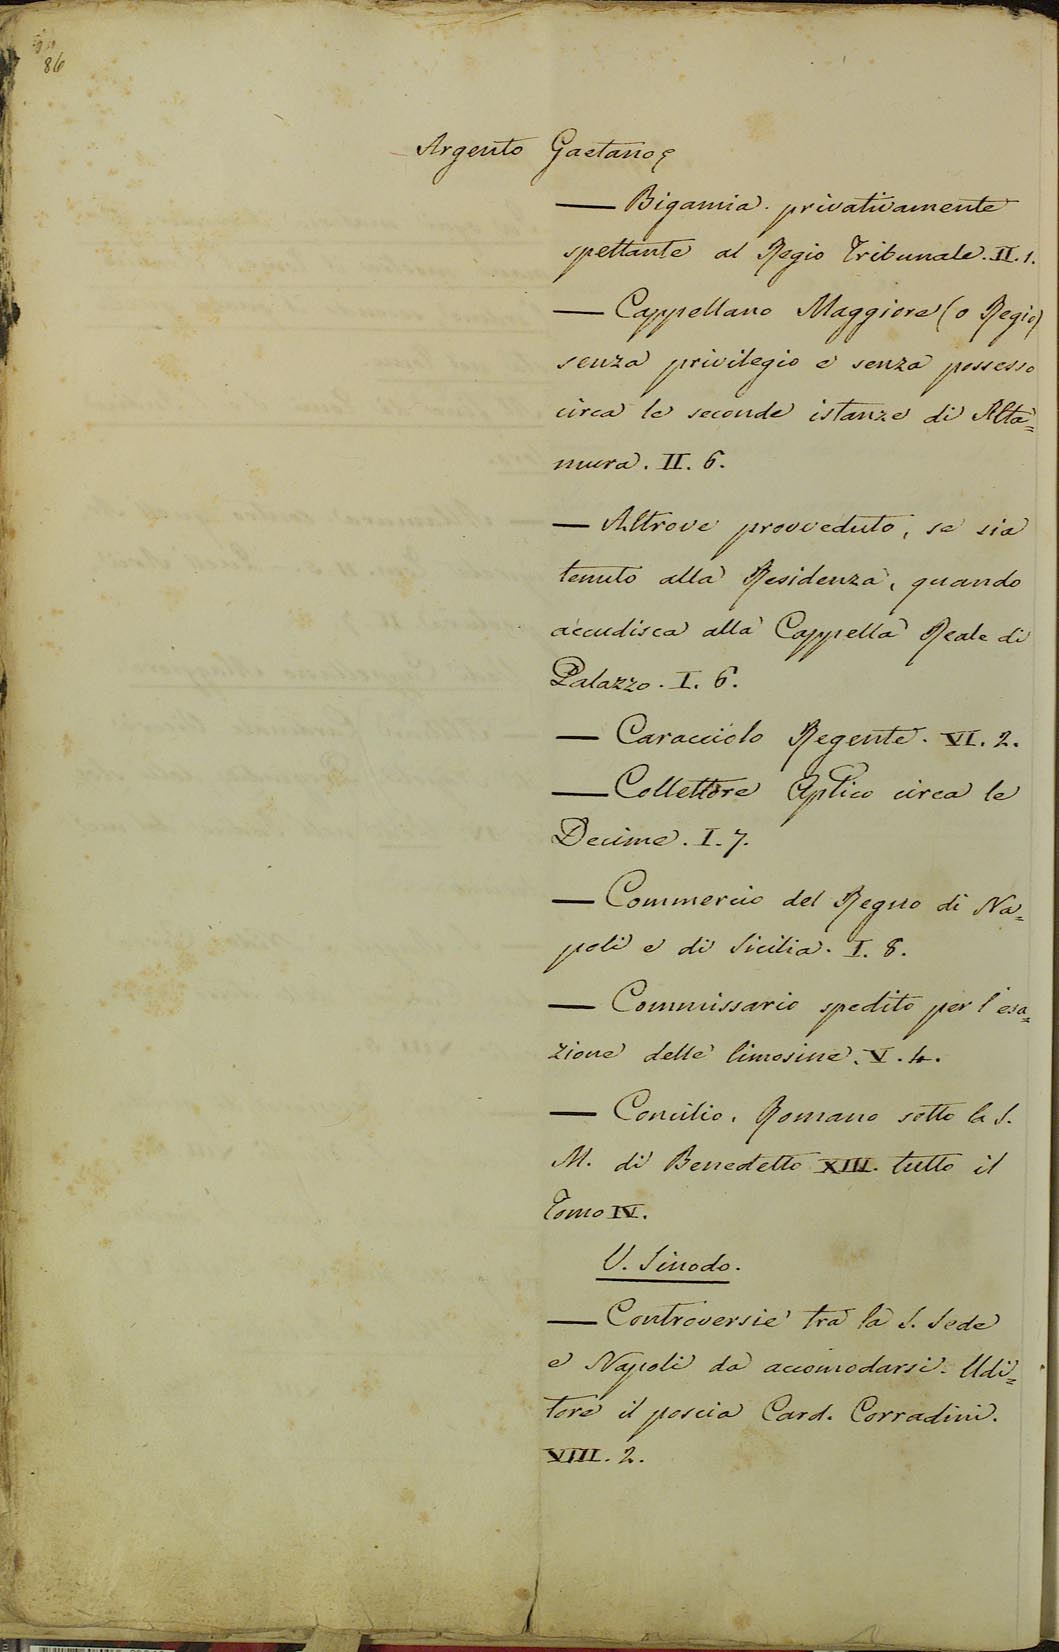 86
Argento Gaetano
— Bigamia. privativamente
spettante al Regio Tribunale. II. 1.
— Cappellano Maggiore (o Regio)
senza privilegio e senza possesso
circa le seconde istanze di Alta=
mura. II. 6.
— Altrove provveduto, se sia
tenuto alla Residenza, quando
accudisca alla Cappella Reale di
Palazzo. I. 6.
— Caracciolo Reggente. VI. 2.
— Collettore Aplico circa le
Decime. I. 7.
— Commercio del Regno di Na=
poli e di Sicilia. I. 8.
— Commissario spedito per l'esa=
zione delle limosine. V. 4.
— Concilio. Romano sotto la S.
M. di Benedetto XIII. tutto il
Tomo IV.
V. Sinodo.
— Controversie tra la S. Sede
e Napoli da accomodarsi. Udi=
tore il poscia Card. Corradini.
VIII. 2.